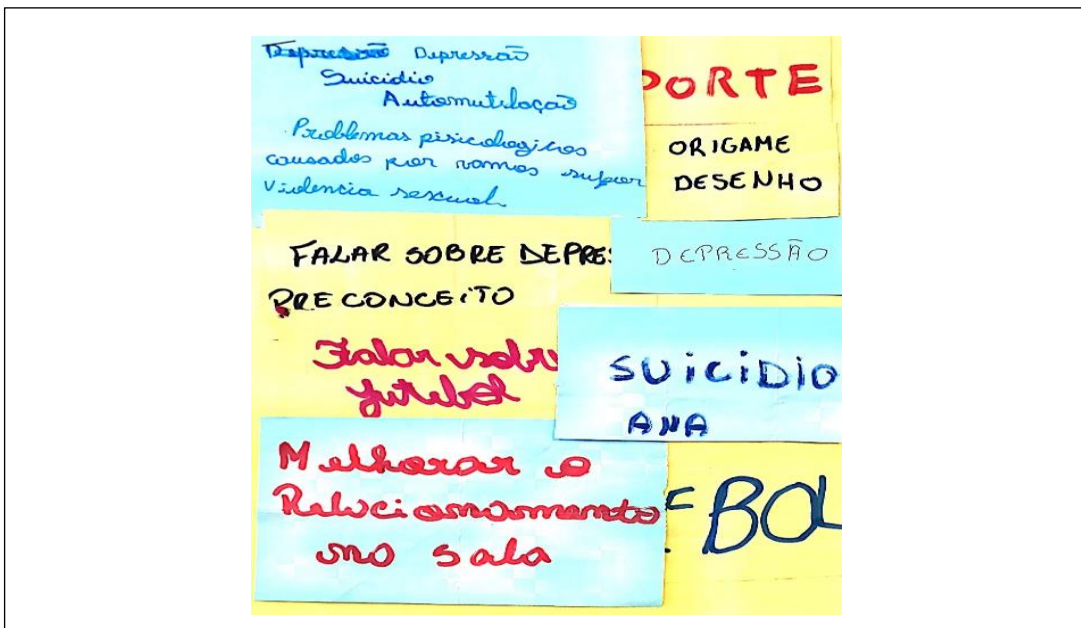 Depressão Depressão
Suicidio
Automutilação
Problemas pisicologicos
causados por vamos supor
violencia sexual
PORTE
ORIGAME
DESENHO
FALAR SOBRE DEPRES
PRECONCEITO
DEPRESSÃO
Falar sobre
futebol
SUiCiDiO
ANA
Melhorar o
Relacionamento
na sala
E BOL